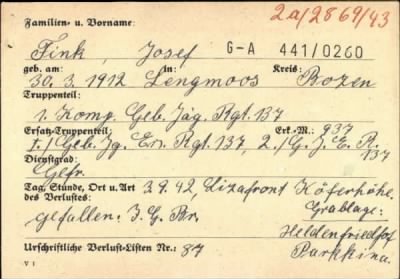 2a/2869/43
Familien- u. Vorname:
Fink, Josef G-A 441/0260
geb. am: in: Kreis:
30. 3. 1912 Lengmoos Bozen
Truppenteil:
1. Komp. Geb. Jäg. Rgt. 137
Ersatz-Truppenteil: Erk.-M.: 937
I./Geb. Jg. Ers. Rgt. 137, 2./G. J. E. R. 137
Dienstgrad:
Gefr.
Tag, Stunde, Ort u. Art 3.9.42 Lizafront Höferhöhe
des Verlustes: Grablage:
gefallen: J. G. Br. Heldenfriedhof
Urschriftliche Verlust-Listen Nr.: 87 Parkkina.
V 1